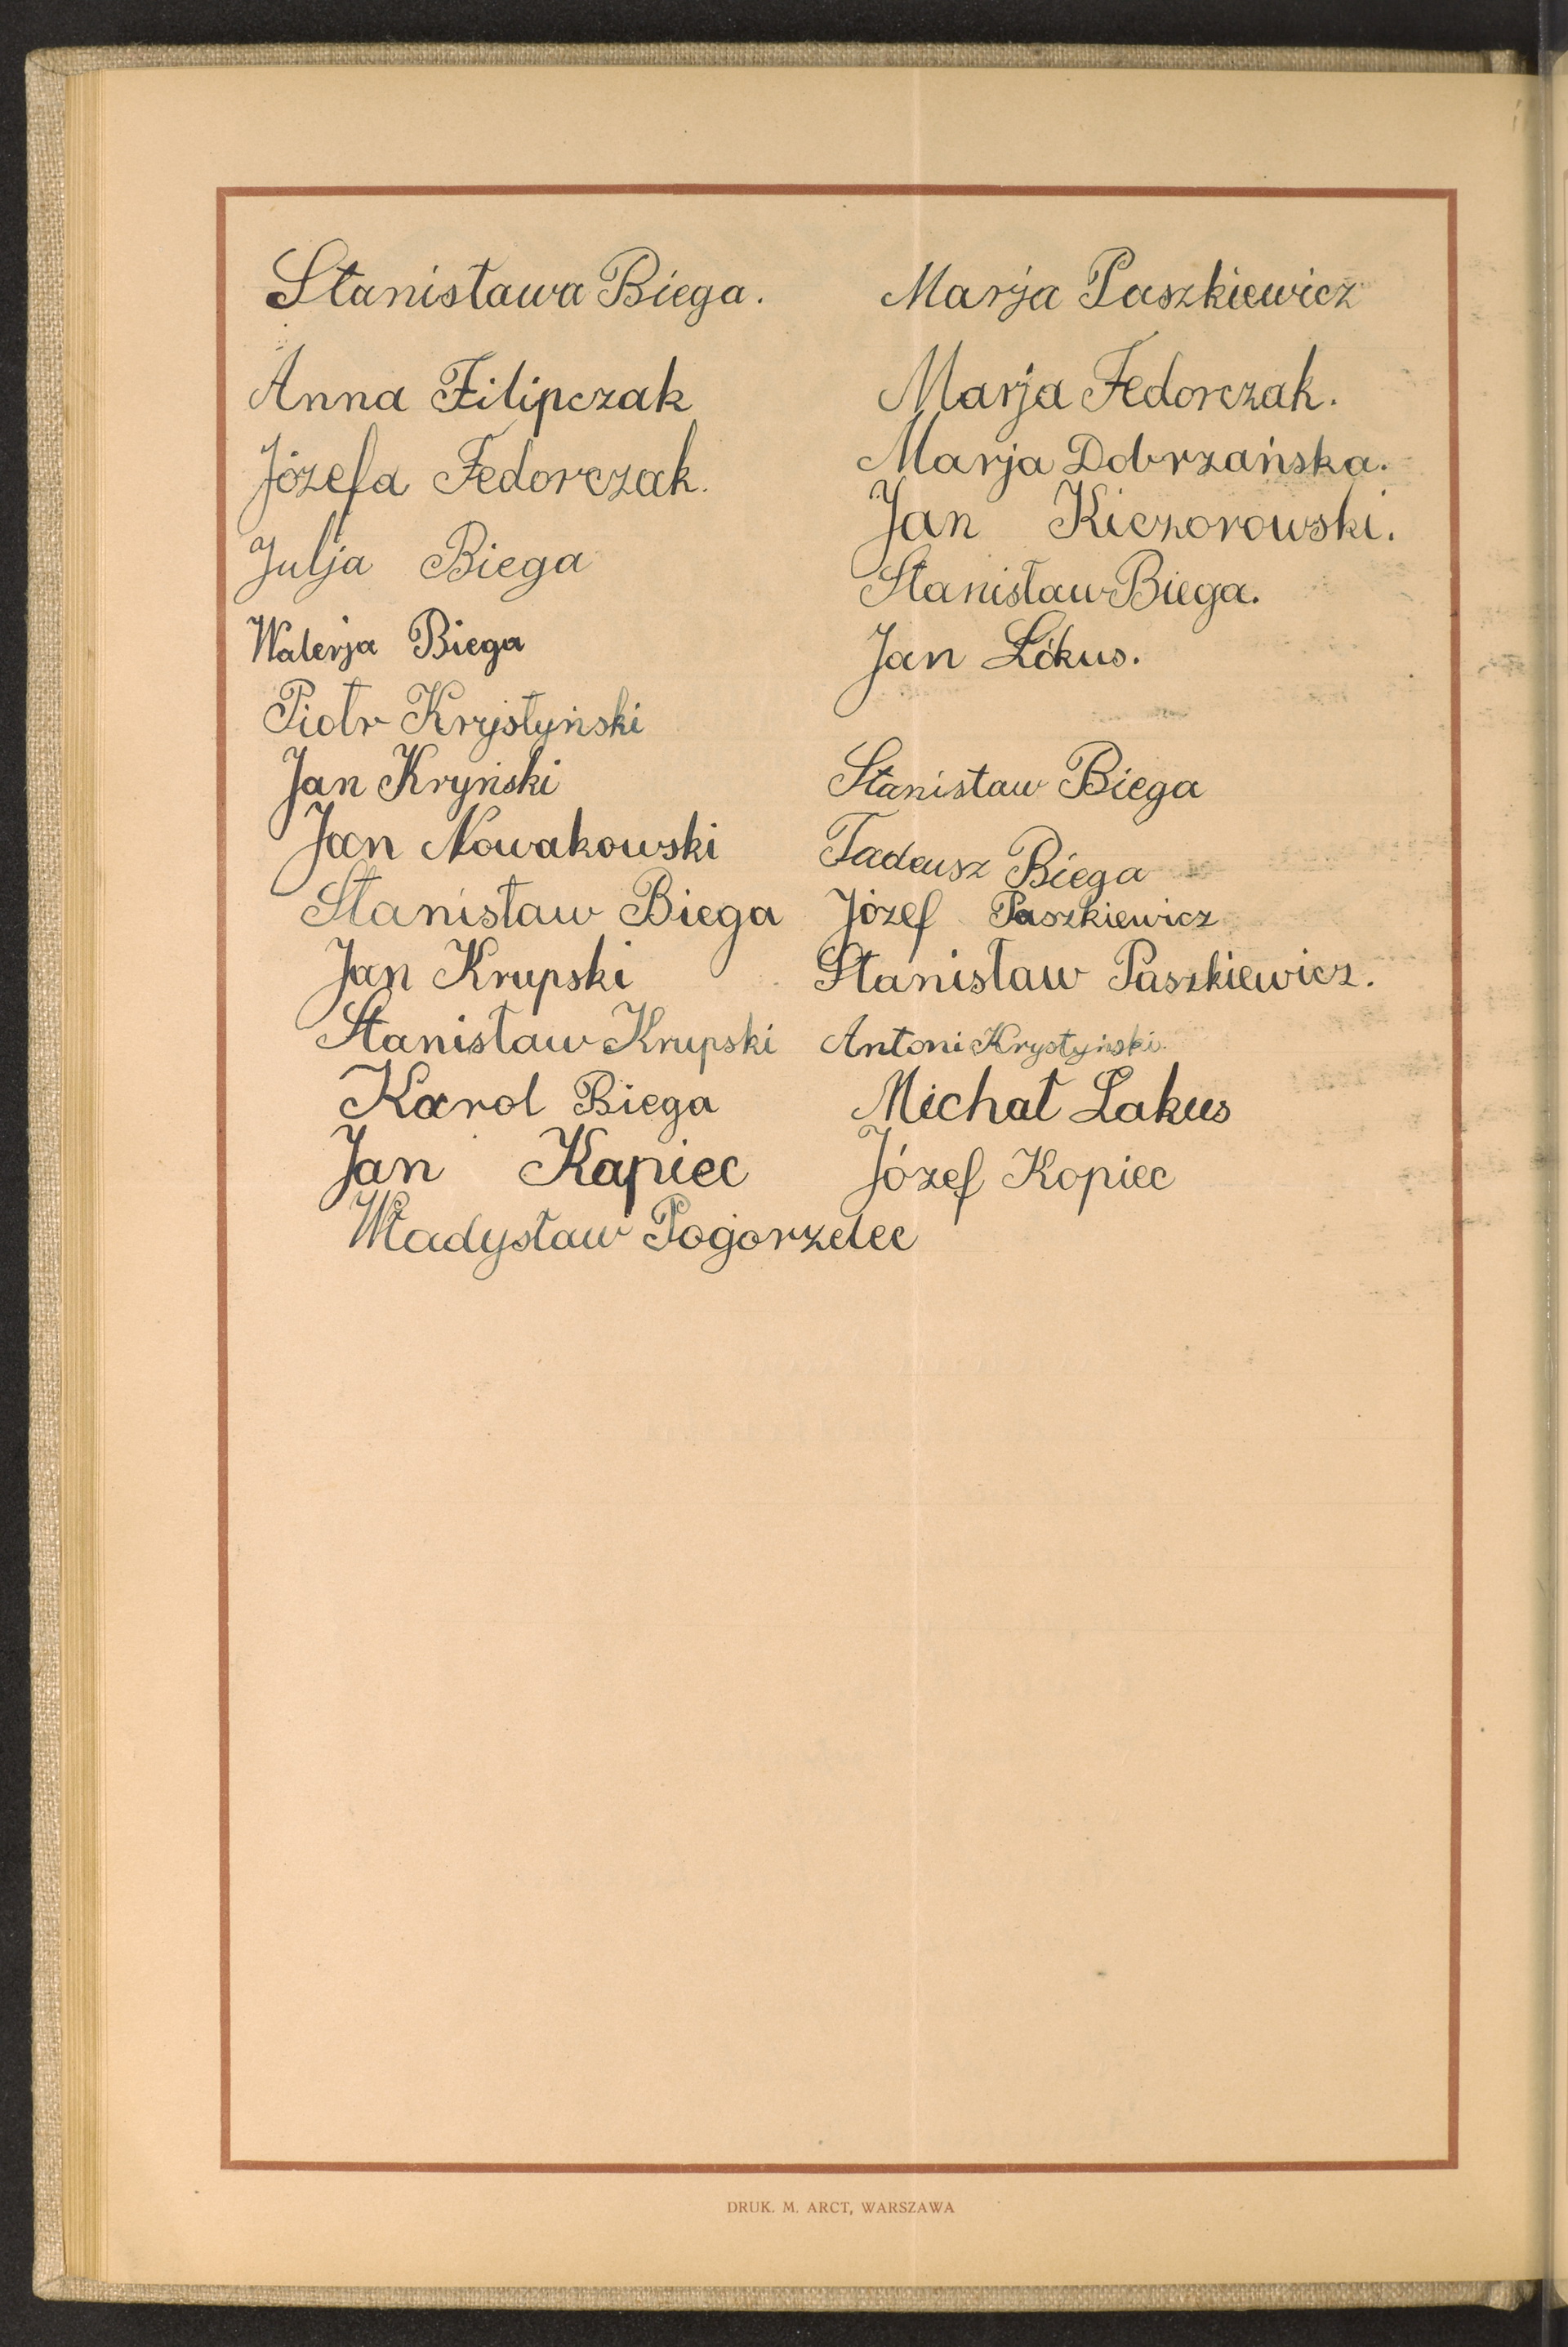 Stanisława Biega.
Anna Filipczak
Józefa Fedorczak.
Julja Biega
Walerja Biega
Piotr Krystyński
Jan Kryński
Jan Nowakowski
Stanisław Biega
Jan Krupski
Stanisław Krupski
Karol Biega
Jan Kapiec
Władysław Pogorzelec
Marja Paszkiewicz
Marja Fedorczak.
Marja Dobrzańska.
Jan Kiczorowski.
Stanisław Biega.
Jan
Stanisław Biega
Tadeusz Biega
Józef Paszkiewicz
Stanisław Paszkiewicz.
Antoni Krystyński.
Michał Lakus
Józef Kopiec
DRUK. M. ARCT, WARSZAWA